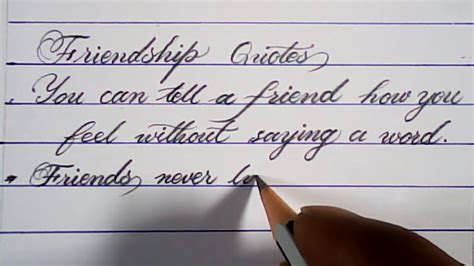 Friendship Quotes
. You can tell a friend how you
feel without saying a word.
• Friends never